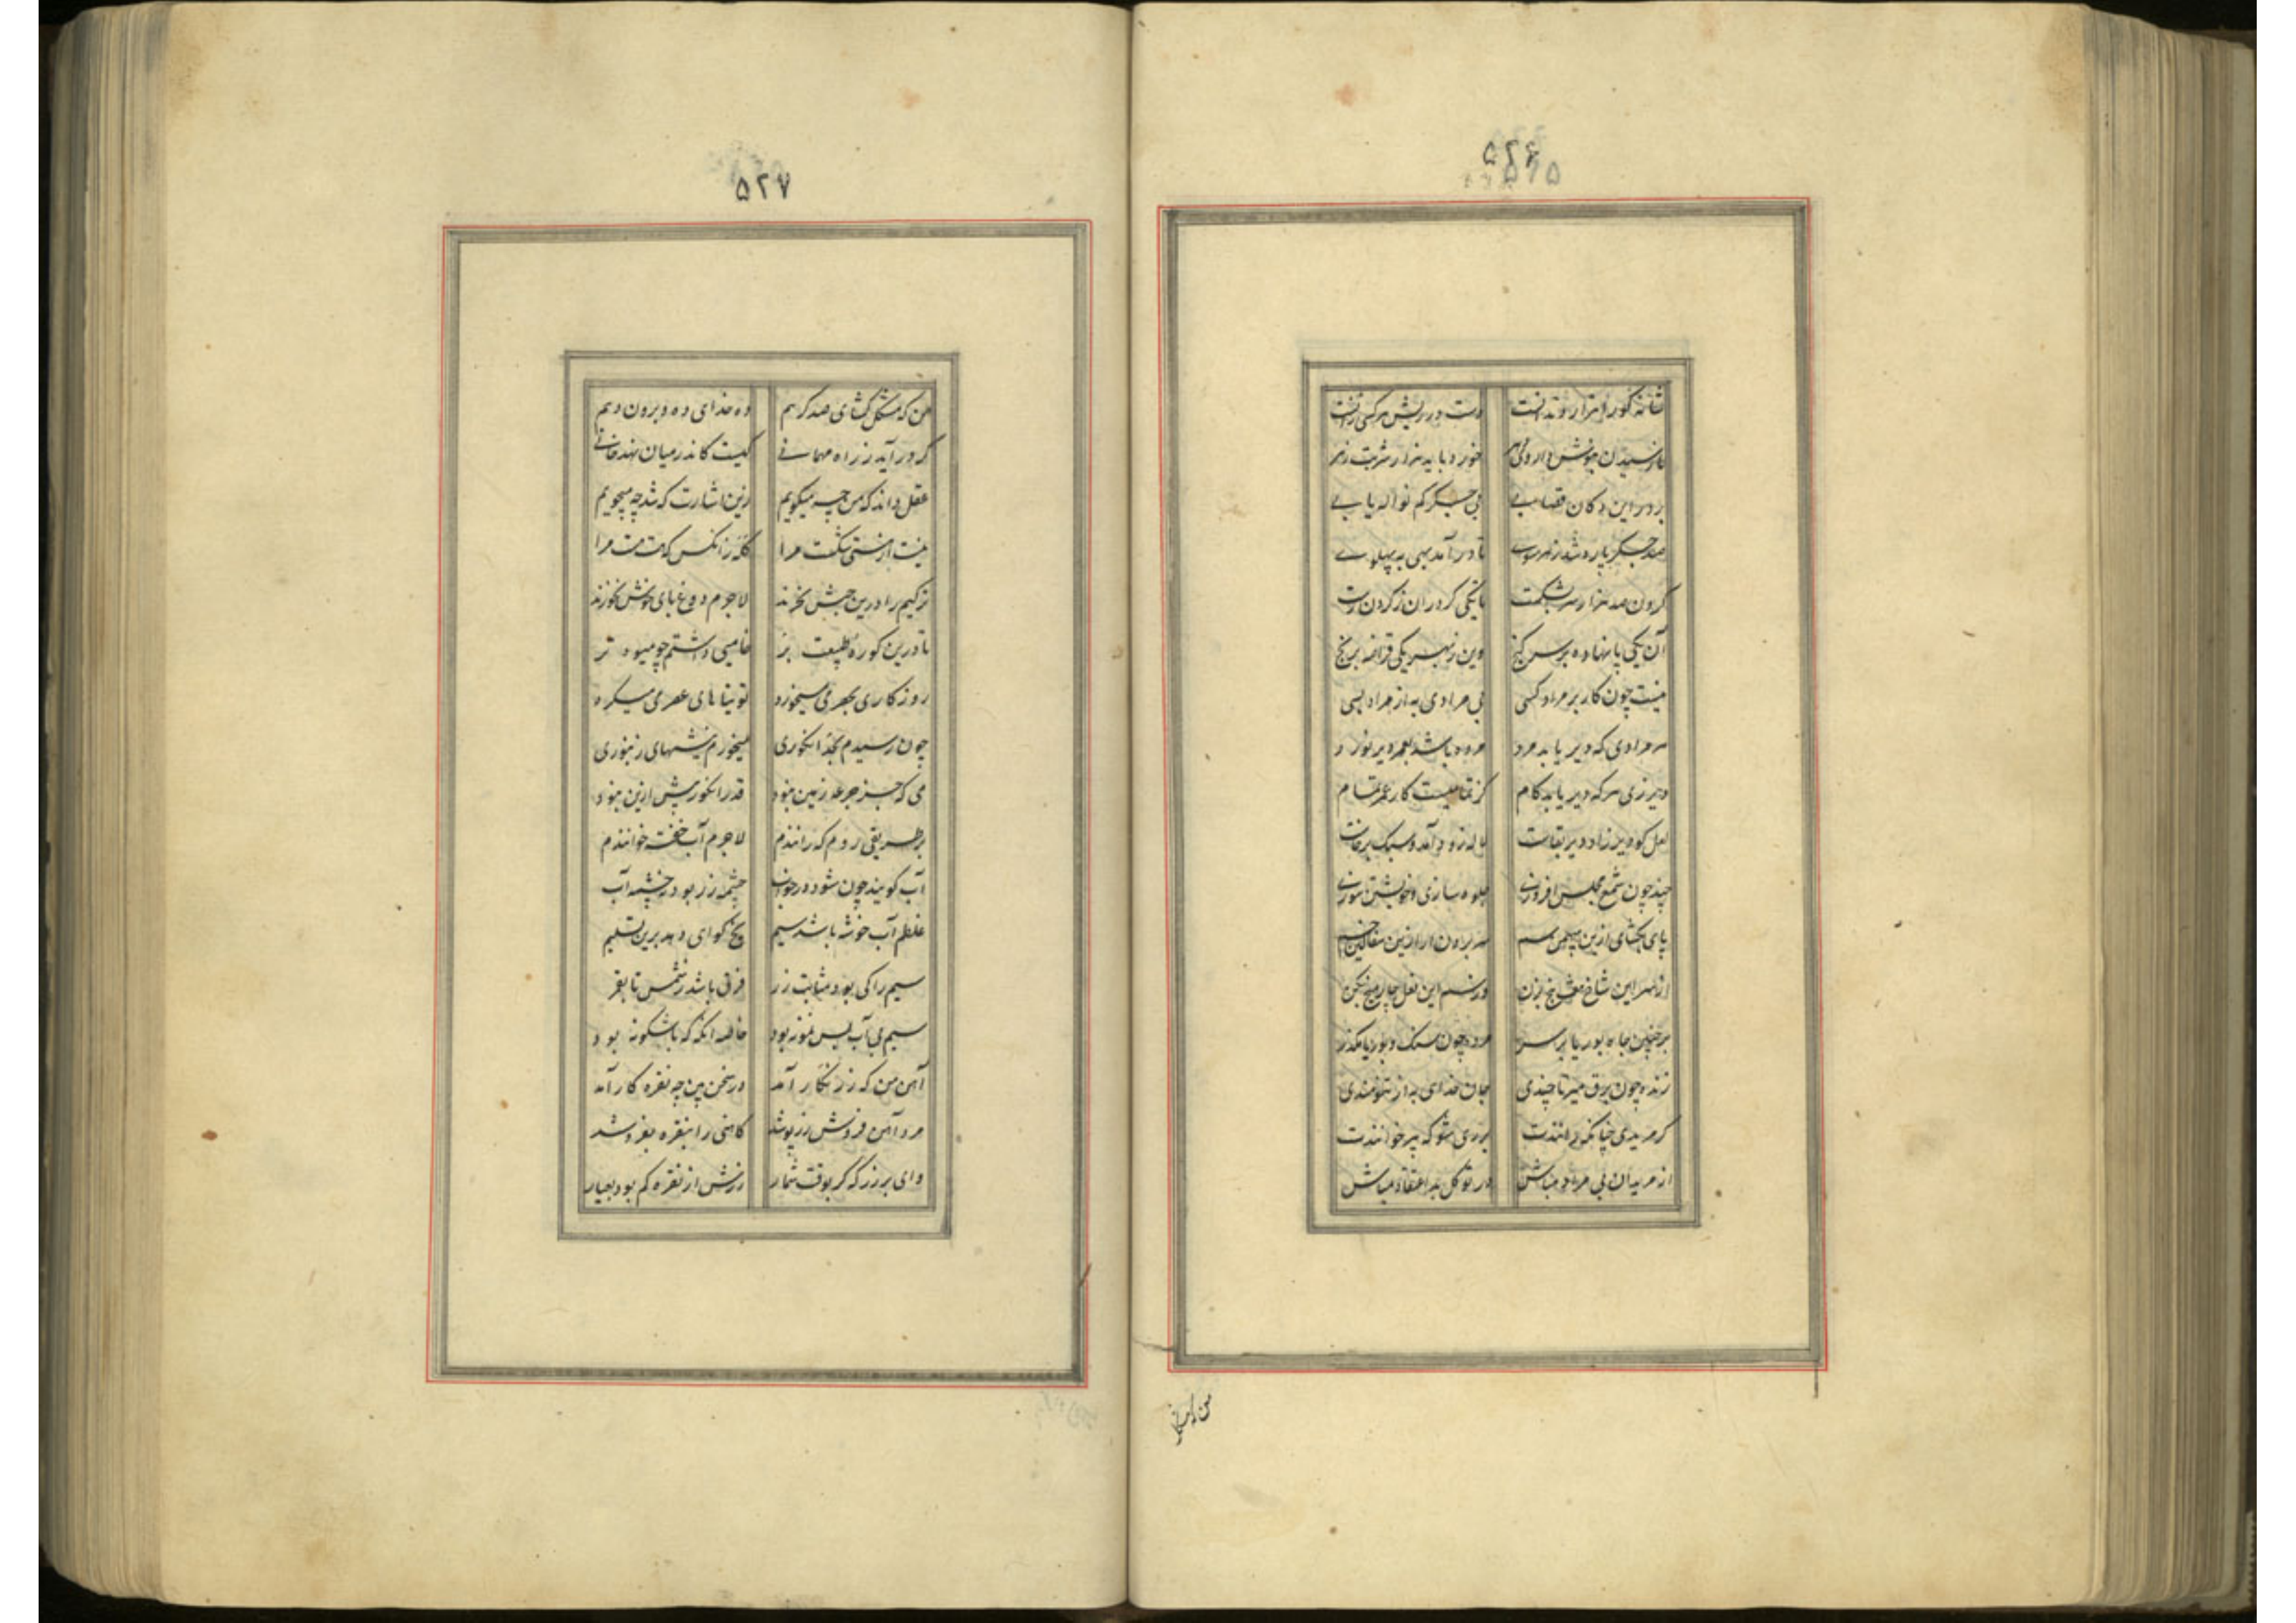 ۵۲۶
شانه کو را هزار دندانست دست در ریش هر کسی زانست
تا رسیدن بنوش داروی دهر خورد باید هزار شربت زهر
بر در این دکان قصابی بی جگر کم نواله یابی
صد جگر پاره شد زهر سوی تا در آمد پهی به پهلوی
گردن صد هزار سر بشکست تا یکی گردران ز گردن رست
آن یکی پا نهاده بر سر گنج وین ز بهر یکی قراضه برنج
نیست چون کار بر مراد کسی بی مرادی به از مراد بسی
هر مرادی که دیر یابد مرد مژده باشد بعمر دیر نورد
دیر زی هر که دیر یابد کام کز تمامیست کار عمر تمام
لعل کو دیر زاد دیر بقاست لاله زود آمد و سبک برخاست
چند چون شمع مجلس افروزی جلوه سازی و خویشتن سوزی
پای بگشای ازین بهیمی سم سر برون آر ازین سفالین خم
از سر این شاخ هفت بیخ بزن وز سم این نعل چار میخ بکن
بر چنین چاه بوریا بر سر مرده چون سنگ و بوریا مگذر
زنده چون برق میر تا خندی جان خدای به از تنومندی
گر مریدی چنانکه رانندت بر ری شو که پیر خوانندت
از مریدان بی مراد مباش در توکل بد اعتقاد مباش
۵۲۷
من که مشکل گشای صد گرهم ده خدای ده و برون دهم
گر در آید ز راه مهمانی کیست کاندر میان نهد خانی
عقل داند که من چه میگویم زین اشارت که شد چه میجویم
نیست از نیستی شکست مرا گله زانکس که هست هست مرا
ترکیم را درین حبش نخرند لاجرم دوغبای خوش نخورند
تا درین کوره طبیعت پز خامیی داشتم چو میوه تر
روزکاری بحصرمی میخورد توتیاهای حصرمی میکرد
چون رسیدم بحد انگوری میخورم نیشهای زنبوری
می که جز جرعه زمین نبود قدر انگور بیش ازین نبود
بر طریقی روم که رانندم لاجرم آب خفته خوانندم
آب گویند چون شود در خواب چشمه زر بود نه چشمه آب
غلطم آب خوشه باشد سیم یخ گوای دهد برین تسلیم
سیم را کی بود مثابت زر فرق باشد ز شمس تا بقمر
سیم بی آب بس نمونه بود خاصه آنگه که باشگونه بود
آهن من که زر نگار آمد در سخن بین چه نقره کار آمد
مرد آهن فروش زر پوشد کاهنی را بنقره بفروشد
وای بر زرگر که وقت شمار زرش از نقره کم بود بعیار